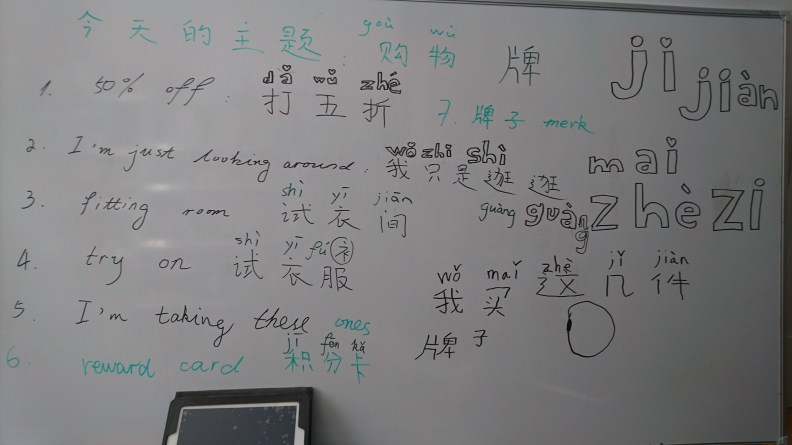 gòu wù
今天的主题：购物 牌
ji
jiàn
dǎ wǔ zhé
1. 50% off : 打五折
7. 牌子 merk
wǒ zhǐ shì
2. I'm just looking around. 我只是逛逛
guàng guàng
mai
zhèzi
shì yī jiān
3. fitting room 试衣间
shì yī fú
4. try on 试衣服
wǒ mǎi zhè jǐ jiàn
5. I'm taking these ones 我买这几件
jī fēn kǎ
6. reward card 积分卡
牌子